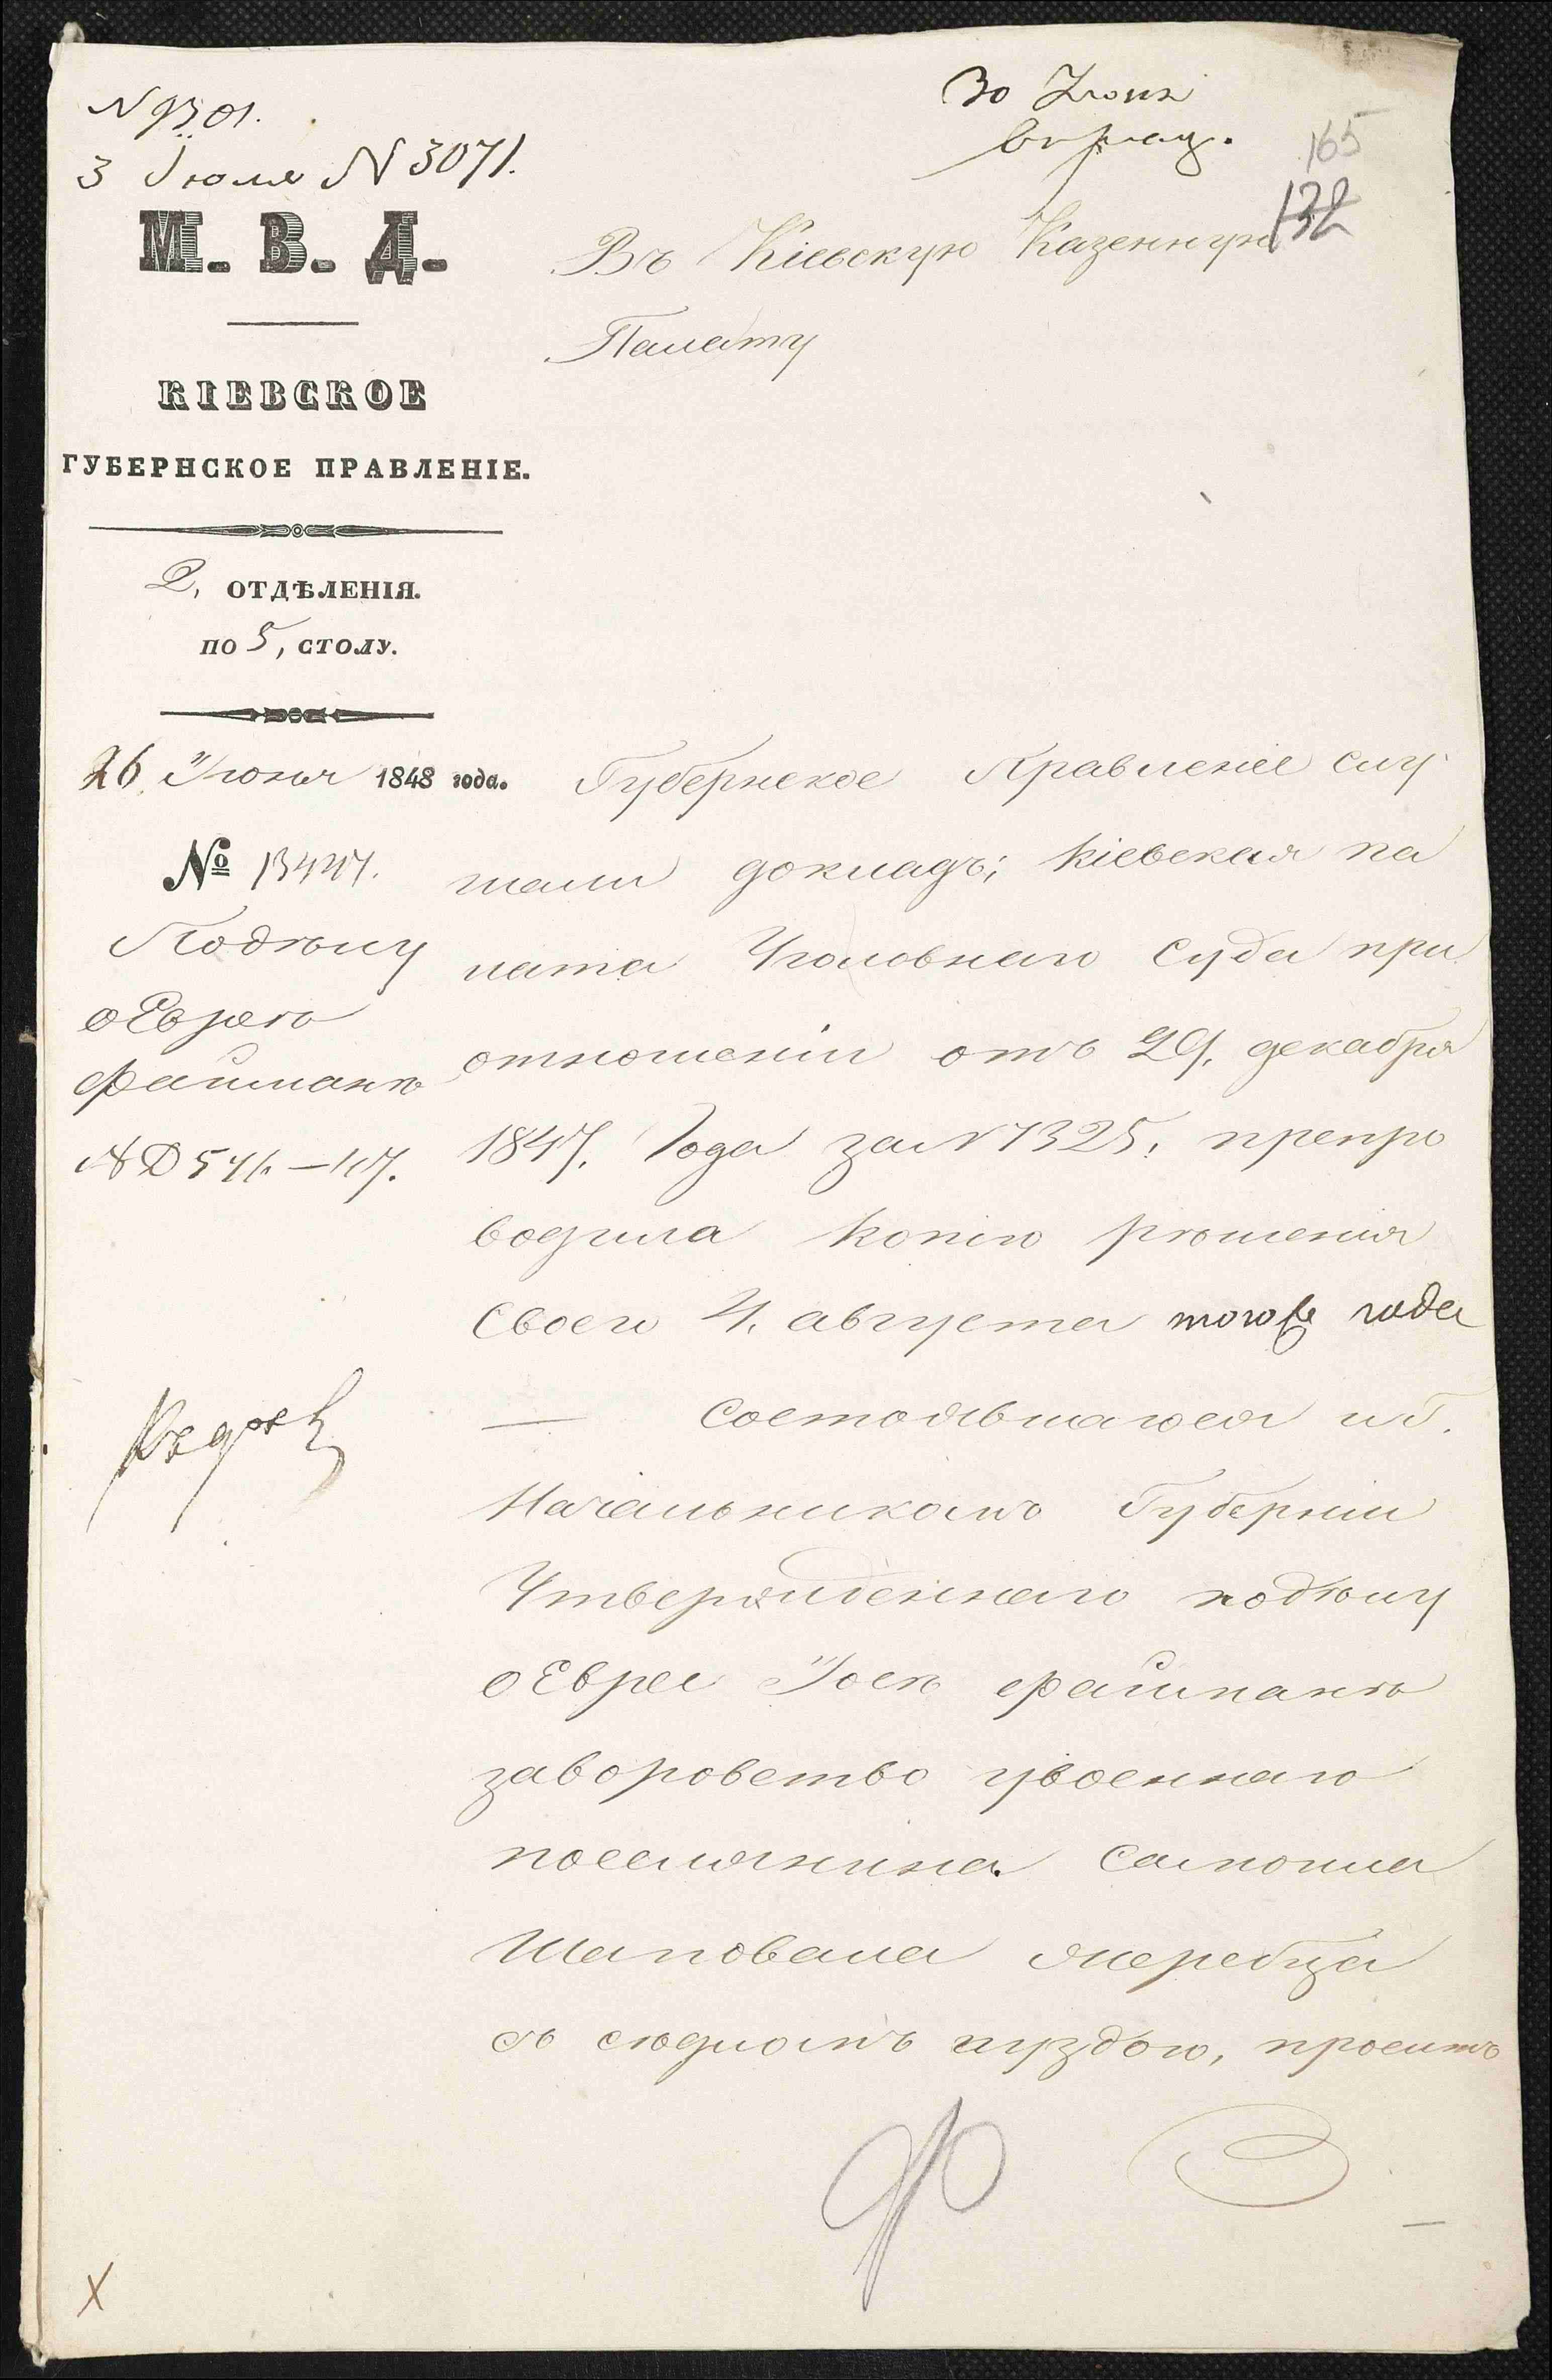 N 9301.
3 Іюля N 3071.
30 Іюня
165
132
М. В. Д.
Въ Кіевскую Казенную
Палату
КІЕВСКОЕ
ГУБЕРНСКОЕ ПРАВЛЕНІЕ.
2, ОТДѢЛЕНІЯ.
ПО 5, СТОЛУ.
26 Іюня 1848 года.
№ 13447.
Подѣлу
о Евреѣ
Файманѣ
Губернское Правленіе слу
шали докладъ; Кіевская па
лата Уголовнаго Суда при
отношеніи отъ 29, декабря
1847, Года за N 7325, препро
водила копію рѣшенія
Своего 4, августа того же года
— состоявшагося и Г.
Начальникомъ Губерніи
Утвержденнаго подѣлу
о Евреи Іосѣ Файманѣ
заворовство увоеннаго
поселянина Самоила
Шаповала жеребца
съ сѣдломъ иуздою, проситъ
Х